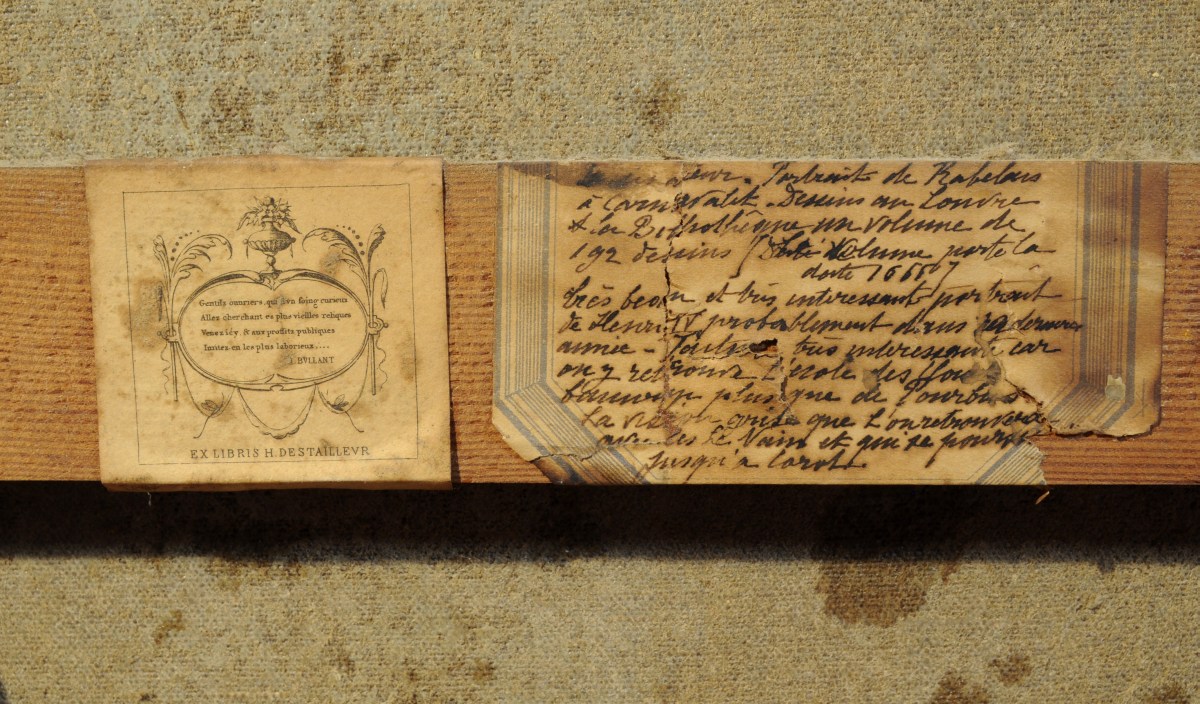 Gentilz ouuriers, qui d'vn soing curieux
Allez cherchant es plus vieilles reliques
Venez icy, & aux proffits publiques
Iuntez en les plus laborieux....
I. BVLLANT
EX LIBRIS H. DESTAILLEVR
Portrait de Rabelais
à Carnavalet. Dessins au Louvre
& la Bibliothêque un volume de
192 dessins volume porte la
date 16667
très beau et très interessant portrait
de Henri IV probablement dans sa derniere
annee - très interessante car
on y retrouve l'ecole des
plus que de Pourbus
La grise que l'on retrouvera
avec les le Nain et qui se
jusqu'a Corot.